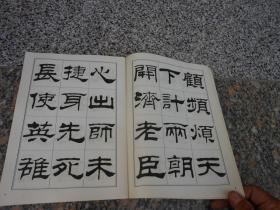 顧頻煩天
下計兩朝
開濟老臣
心出師未
捷身先死
長使英雄